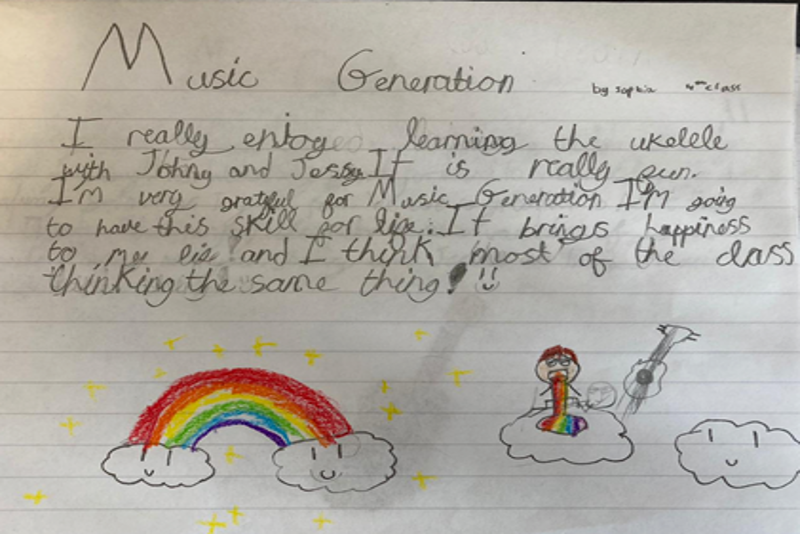 Music Generation by sophia 4th class
I really enjoye learning the ukelele
with Johny and Jessy. It is really fun.
I'm very grateful for Music Generation I'm going
to have this skill for life. It brings happiness
to my and I think most of the class
thinking the same thing!